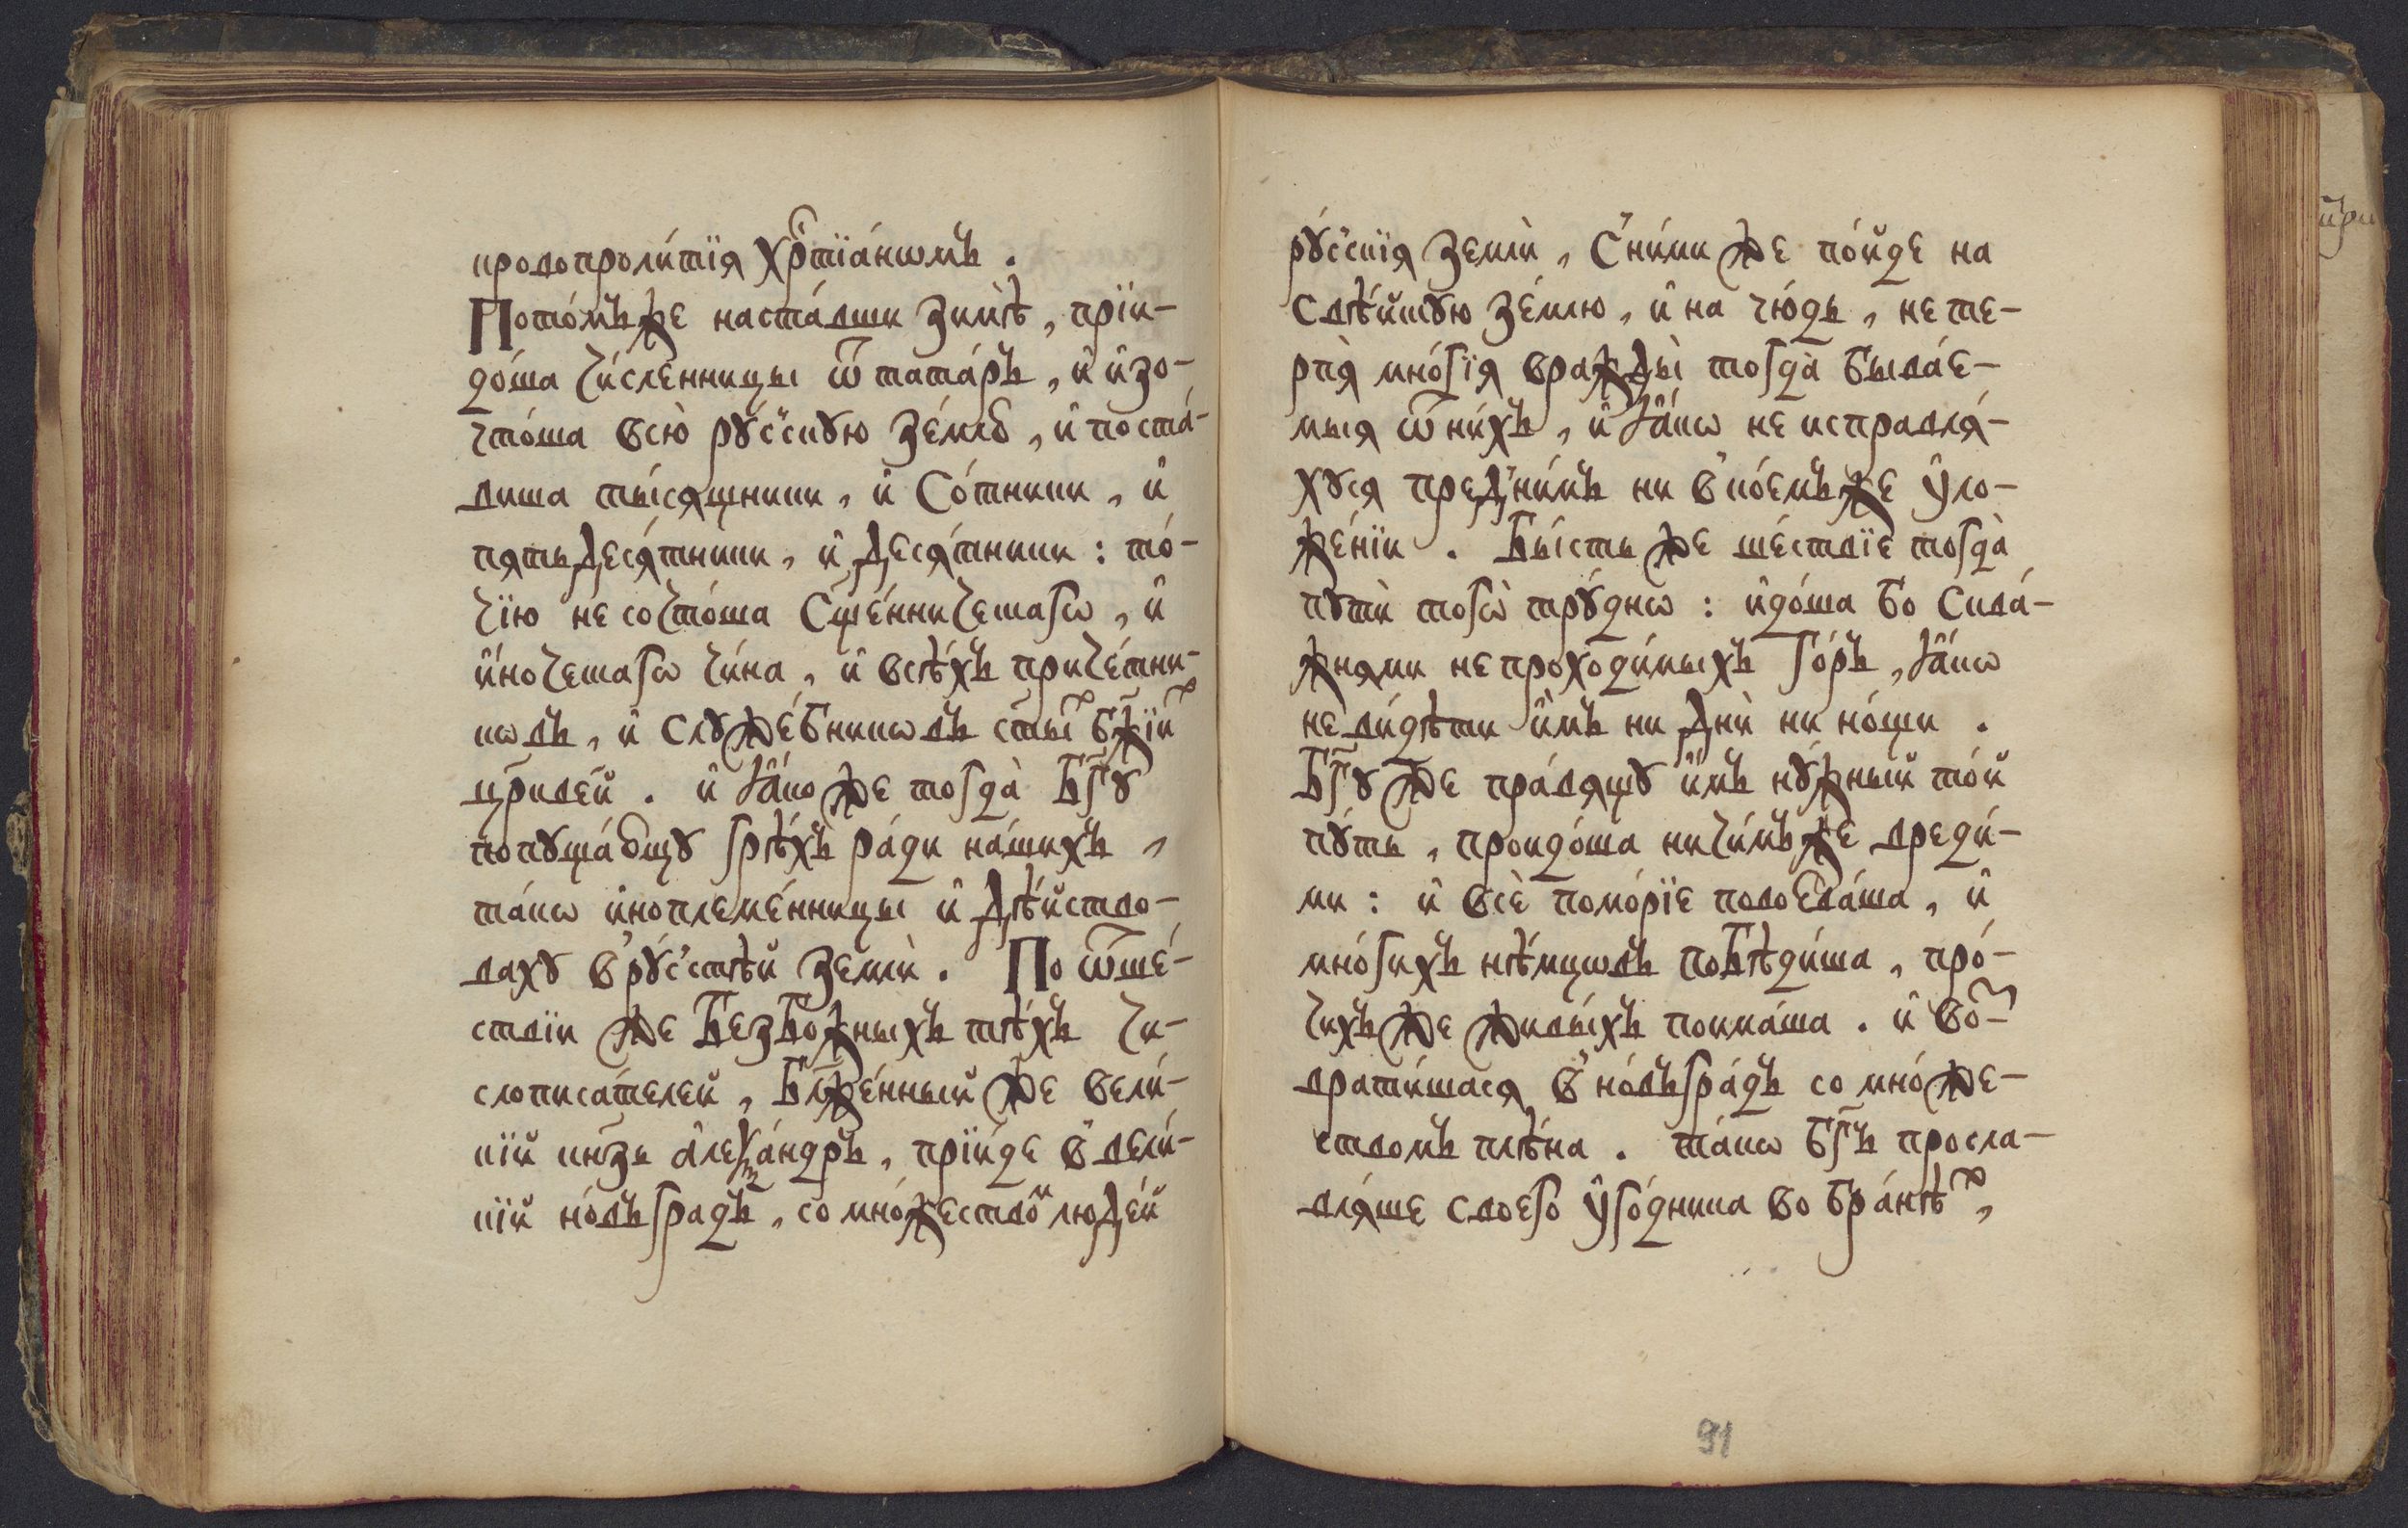 кровопроли́тїя хр҇тїа́нѡмъ .
Пото́мъ же наста́вши зимѣ̀ , прїи-
до́ша чи́сленницы ѿ тата́ръ , и҆ и҆зо-
что́ша всю̀ рꙋ́сскꙋю зе́млю , и҆ поста́-
виша ты́сящники , и҆ со́тники , и҆
пятьдеся́тники , и҆ деся́тники : то́-
чїю не сочто́ша сщ҃е́нническагѡ , и҆
и҆́ноческагѡ чи́на , и҆ всѣ́хъ приче́тни-
кѡвъ , и҆ слꙋже́бникѡвъ ст҃ы́хъ бж҃їихъ
цр҃кве́й . и҆ ꙗ҆́коже тогда̀ бг҃ꙋ
попꙋща́ющꙋ грѣ́хъ ра́ди на́шихъ ,
та́кѡ и҆ноплеме́нницы и҆ дѣ́йство-
вахꙋ в рꙋ́сстѣй землѝ . По ѿше́-
ствїи же безбо́жныхъ тѣ́хъ чи-
слописа́телей , бл҃же́нный же вели́-
кїй кн҃зь а҆леѯа́ндръ , прїи́де в вели́-
кїй но́въгра́дъ , со мно́жествомъ люде́й
рꙋ́сскїя землѝ , с ни́ми же по́йде на
свѣ́йскꙋю зе́млю , и҆ на чю́дь , не те-
рпя̀ мно́гїя вражды̀ тогда̀ быва́е-
мыя ѿ ни́хъ , и҆ ꙗ҆́кѡ не исправля́-
хꙋся пред ни́мъ ни в ко́емъже ᲂу҆ло-
же́нїи . Бы́сть же ше́ствїе тогда̀
пꙋтѝ тогѡ̀ трꙋ́днѡ : и҆до́ша бо сква́-
жнями непроходи́мыхъ го́ръ , ꙗ҆́кѡ
не ви́дѣти и҆̀мъ ни днѝ ни но́щи .
Бг҃ꙋ же пра́вящꙋ и҆̀мъ нꙋ́жный то́й
пꙋ́ть , проидо́ша ничи́мъже вреди́-
ми : и҆ всѐ помо́рїе повоева́ша , и҆
мно́гихъ нѣ́мцѡвъ побѣди́ша , про́-
чихъ же живы́хъ поима́ша . и҆ воз-
врати́шася в но́въгра́дъ со мно́же-
ствомъ плѣ́на . та́кѡ бг҃ъ просла-
вля́ше своего̀ ᲂу҆го́дника во бра́нѣхъ ,
91